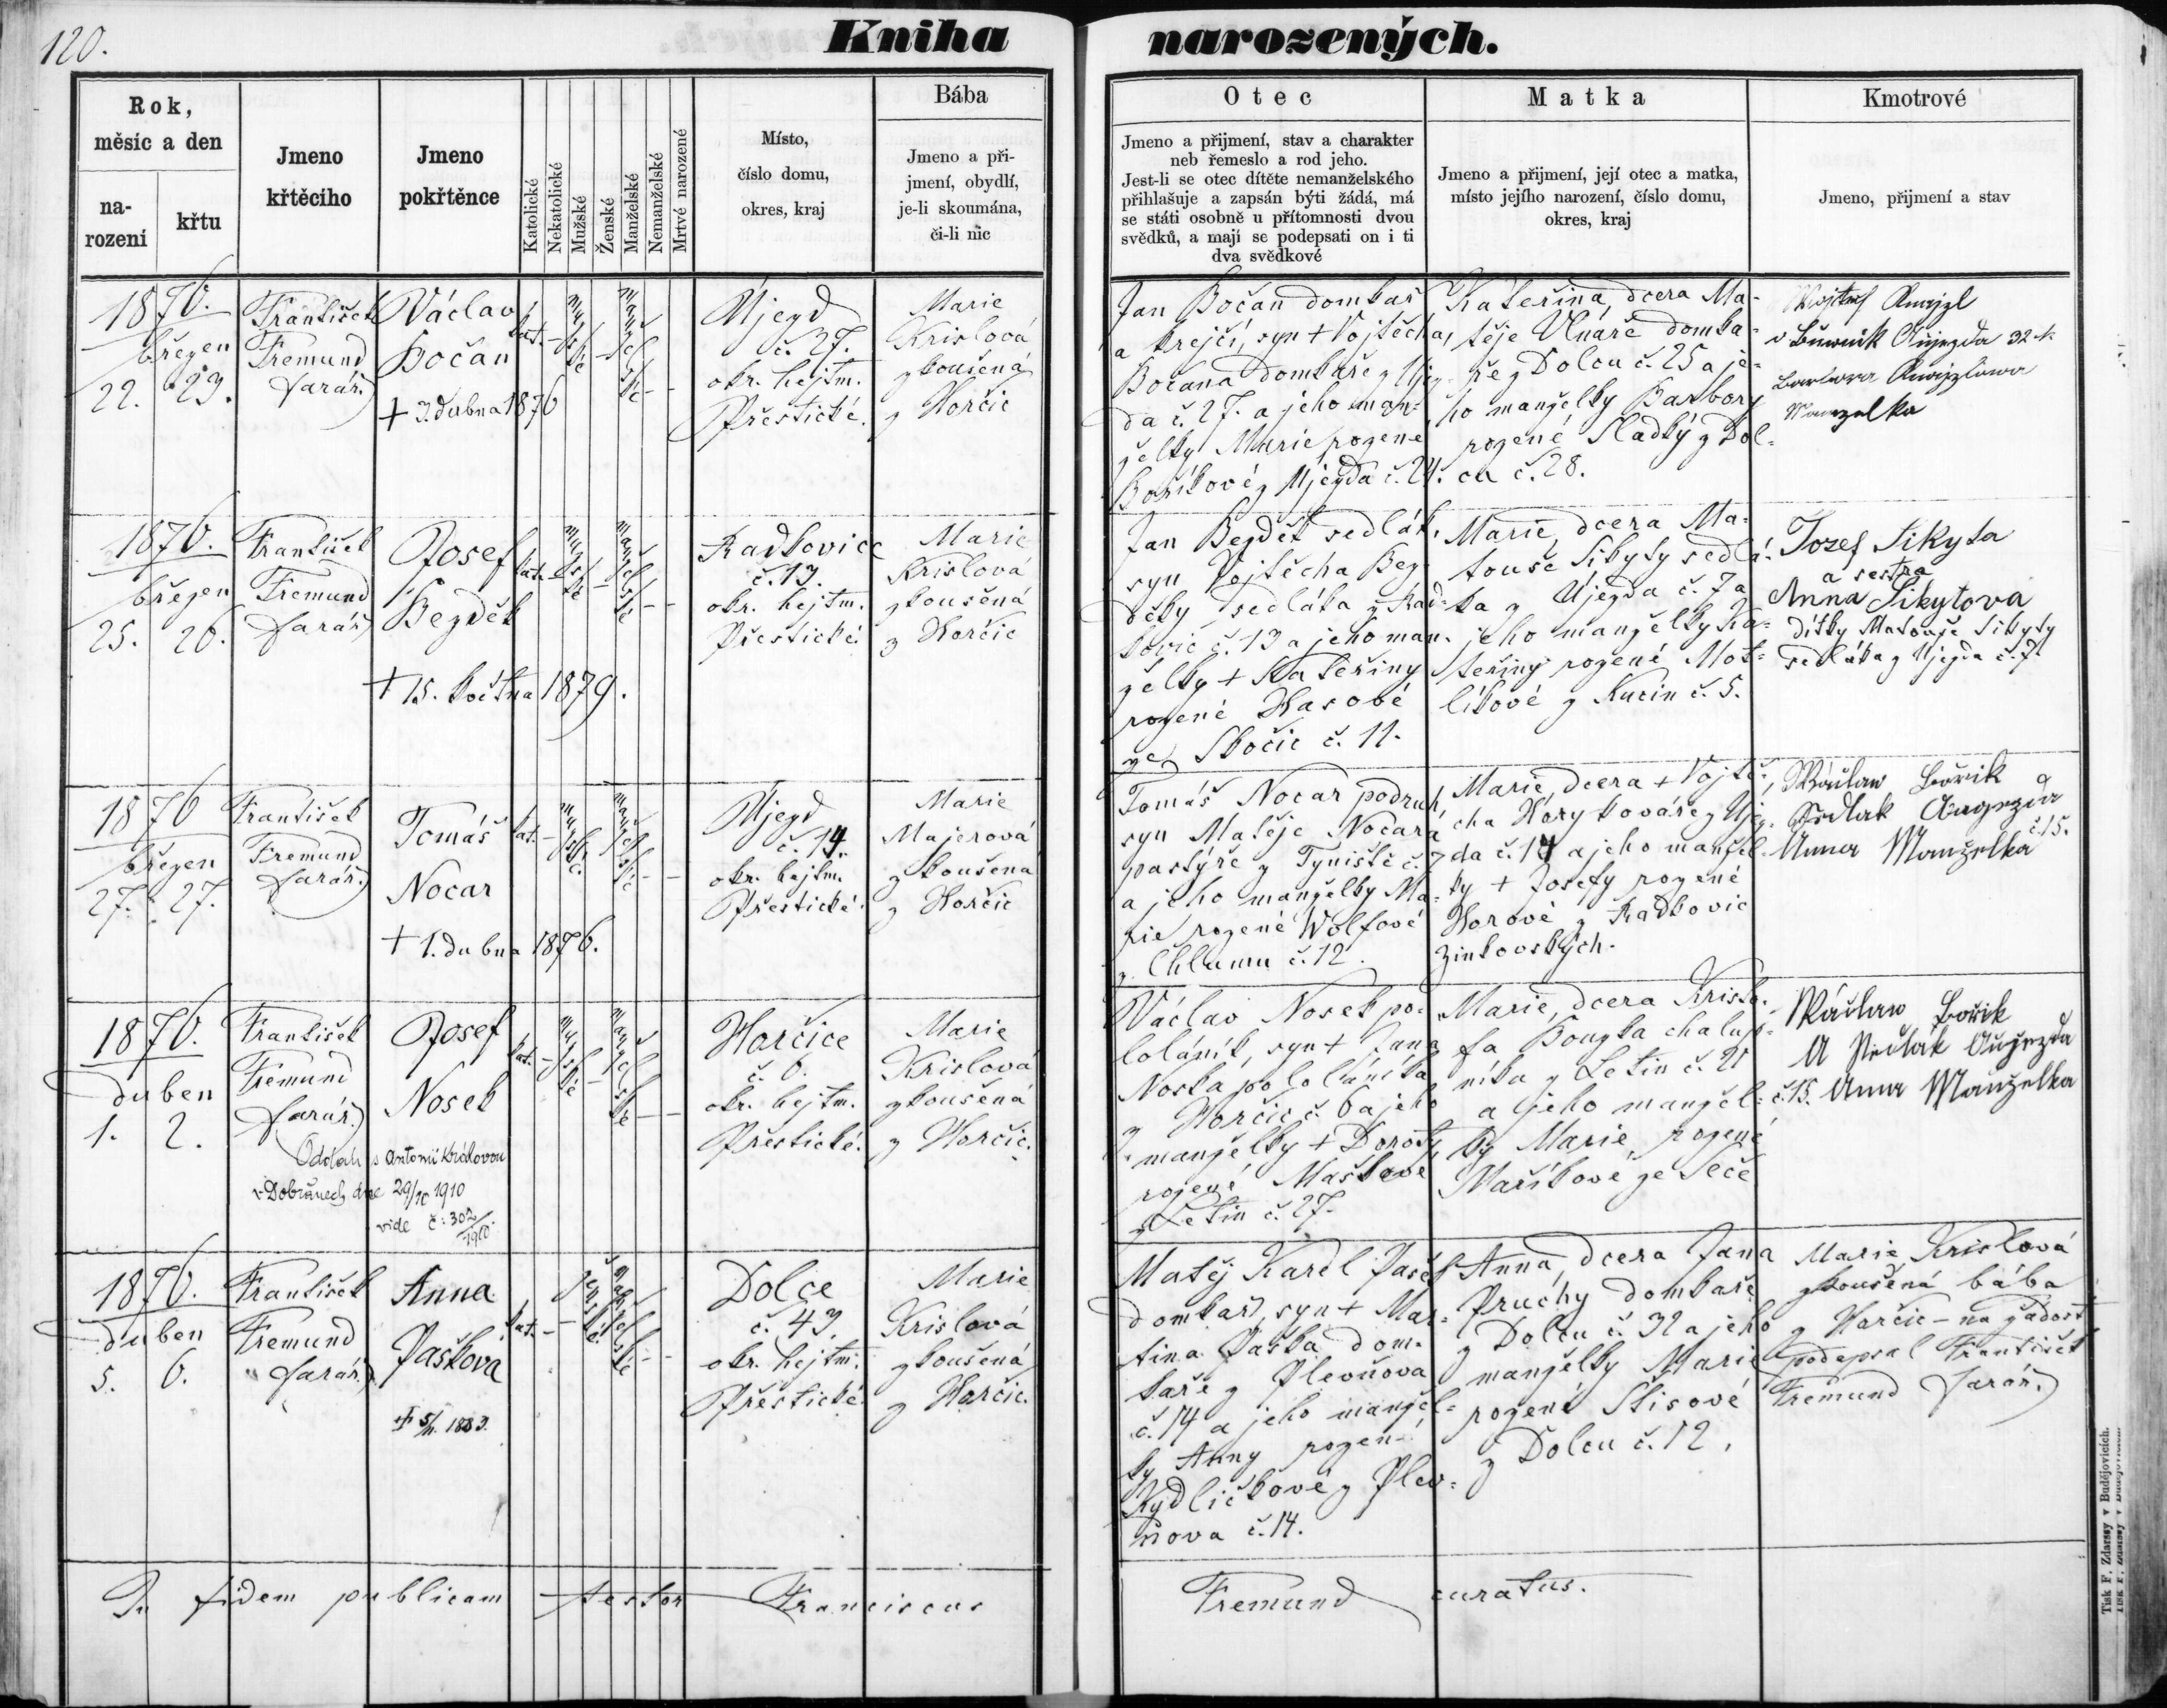 120.
Kniha narozených.
Rok,
měsíc a den
na-
rození
křtu
Jmeno
křtěcího
Jmeno
pokřtěnce
Katolické
Nekatolické
Mužské
Ženské
Manželské
Nemanželské
Mrtvě narozené
Místo,
číslo domu,
okres, kraj
Bába
Jmeno a při-
jmení, obydlí,
je-li skoumána,
či-li nic
Otec
Jmeno a přijmení, stav a charakter
neb řemeslo a rod jeho.
Jest-li se otec dítěte nemanželského
přihlašuje a zapsán býti žádá, má
se státi osobně u přítomnosti dvou
svědků, a mají se podepsati on i ti
dva svědkové
Matka
Jmeno a přijmení, její otec a matka,
místo jejího narození, číslo domu,
okres, kraj
Kmotrové
Jmeno, přijmení a stav
1876.
březen
22. 23.
František
Fremund
farář.
Václav
Bočan
+ 3. dubna 1876
kat.
mužské
manželské
Újezd
č. 27.
okr. hejtm.
Přestické.
Marie
Krislová
zkoušená
z Horčic
Jan Bočan domkař
a krejčí, syn + Vojtěcha
Bočana domkáře z Új-
da č. 27. a jeho man-
želky Marie rozené
Boříkové z Újezda č. 24.
Kateřina, dcera Ma-
těje Vlnáře domka-
ře z Dolcu č. 25 a je-
ho manželky Barbory
rozené Sladký z Dol-
cu č. 28.
32
Barbora
Manzelka
1876.
březen
25. 26.
František
Fremund
farář
Josef
Bezděk
+ 15. května 1879.
kat.
mužské
manželské
Radkovice
č. 13.
okr. hejtm.
Přestické.
Marie
Krislová
zkoušená
z Horčic
Jan Bezděk sedlák,
syn Vojtěcha Bez-
děky sedláka z Rad-
kovic č. 13 a jeho man-
želky + Kateřiny
rozené Hasové
ze Skočic č. 11.
Marie, dcera Ma-
touše Sikyty sedlá-
ka z Újezda č. 7 a
jeho manželky Ka-
teřiny rozené Mot-
líkové z Kucin č. 5.
Jozef Sikyta
a sestra
Anna Sikytova
dítky Matouše Sikyty
sedláka z Újezda č. 7.
1876
březen
27. 27.
František
Fremund
farář.
Tomáš
Nocar
+ 1. dubna 1876.
kat.
mužské
manželské
Újezd
č. 14.
okr. hejtm.
Přestické.
Marie
Majerová
zkoušena
z Horčic
Tomáš Nocar podruh,
syn Matěje Nocara
pastýře z Týniště č. 7
a jeho manželky Ma-
rie rozené Wolfové
z Chlumu č. 12.
Marie, dcera + Vojtě-
cha Hory kováře z Új-
da č. 14 a jeho manžel-
ky + Josefy rozené
Horové z Radkovic
Zinkovských.
Wáclaw Bořik
Sedlak
a
Anna Manželka
č. 15.
1876.
duben
1. 2.
František
Fremund
farář.
Josef
Nosek
Oddán s Antonií Královou
v Dobřanech dne 29/10 1910
vide č: 302/1910.
kat.
mužské
manželské
Horčice
č. 6.
okr. hejtm.
Přestické.
Marie
Krislová
zkoušená
z Horčic.
Václav Nosek po-
loláník, syn + Jana
Noska pololáníka
z Horčic č. 6 a jeho
manželky + Doroty
rozené Maškové
z Letin č. 27.
Marie, dcera Krišto-
fa Bouzka chalup-
níka z Letin č. 21
a jeho manžel-
ky Marie, rozené
Maříkové ze Seče
Wáclaw Bořik
a Sedlák Aujezda
č. 15. Anna Manželka
1876.
duben
5. 6.
František
Fremund
farář.
Anna
Paškova
+ 5/11. 1883.
kat.
ženské
manželské
Dolce
č. 43.
okr. hejtm.
Přestické.
Marie
Krislová
zkoušená
z Horčic.
Matěj Karel Pašek
domkař, syn + Mar-
tina Paška dom-
kaře z Plevňova
č. 14 a jeho manžel-
ky Anny rozené
Kydličkové z Plev-
ňova č. 14.
Anna, dcera Jana
Průchy domkaře
z Dolcu č. 32 a jeho
manželky Marie
rozené Slisové
z Dolcu č. 12,
Marie Krislová
zkoušená bába
z Horčic - na žádost
podepsal František
Fremund farář.
In fidem publicam testor Franciscus Fremund curatus.
Tisk F. Zdarssy v Budějovicích.